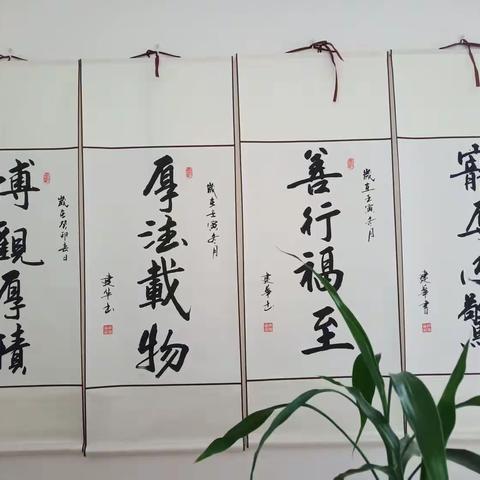 博觀厚積
歲在癸卯春日
厚法載物
歲在壬寅冬月
建華書
善行福至
歲在壬寅冬月
建華書
寵辱不驚
建華書